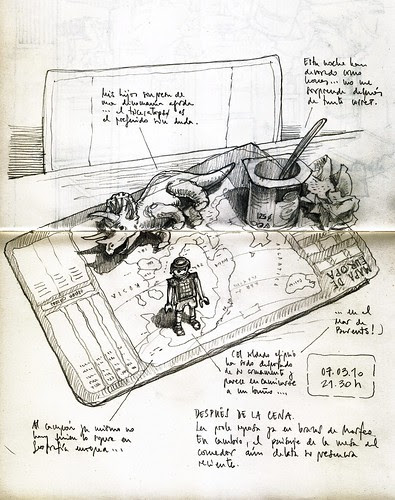 Mis hijos son presa de
una dinomanía aguda
... el triceratops es
el preferido sin duda.
Esta noche han
devorado como
leones... no me
sorprende después
de tanto correr.
MAPA DE
EUROPA
(El soldado egipcio
ha sido despojado
de su armamento y
parece encaminarse
a un baño ....
... en el
Mar de
Barents!)
07.03.10
21.30h
Al campeón ya mismo no
hay quien lo supere en
geografía europea...
DESPUÉS DE LA CENA.
La prole reposa ya en brazos de Morfeo.
En cambio, el paisaje de la mesa del
comedor aún delata su presencia
reciente.